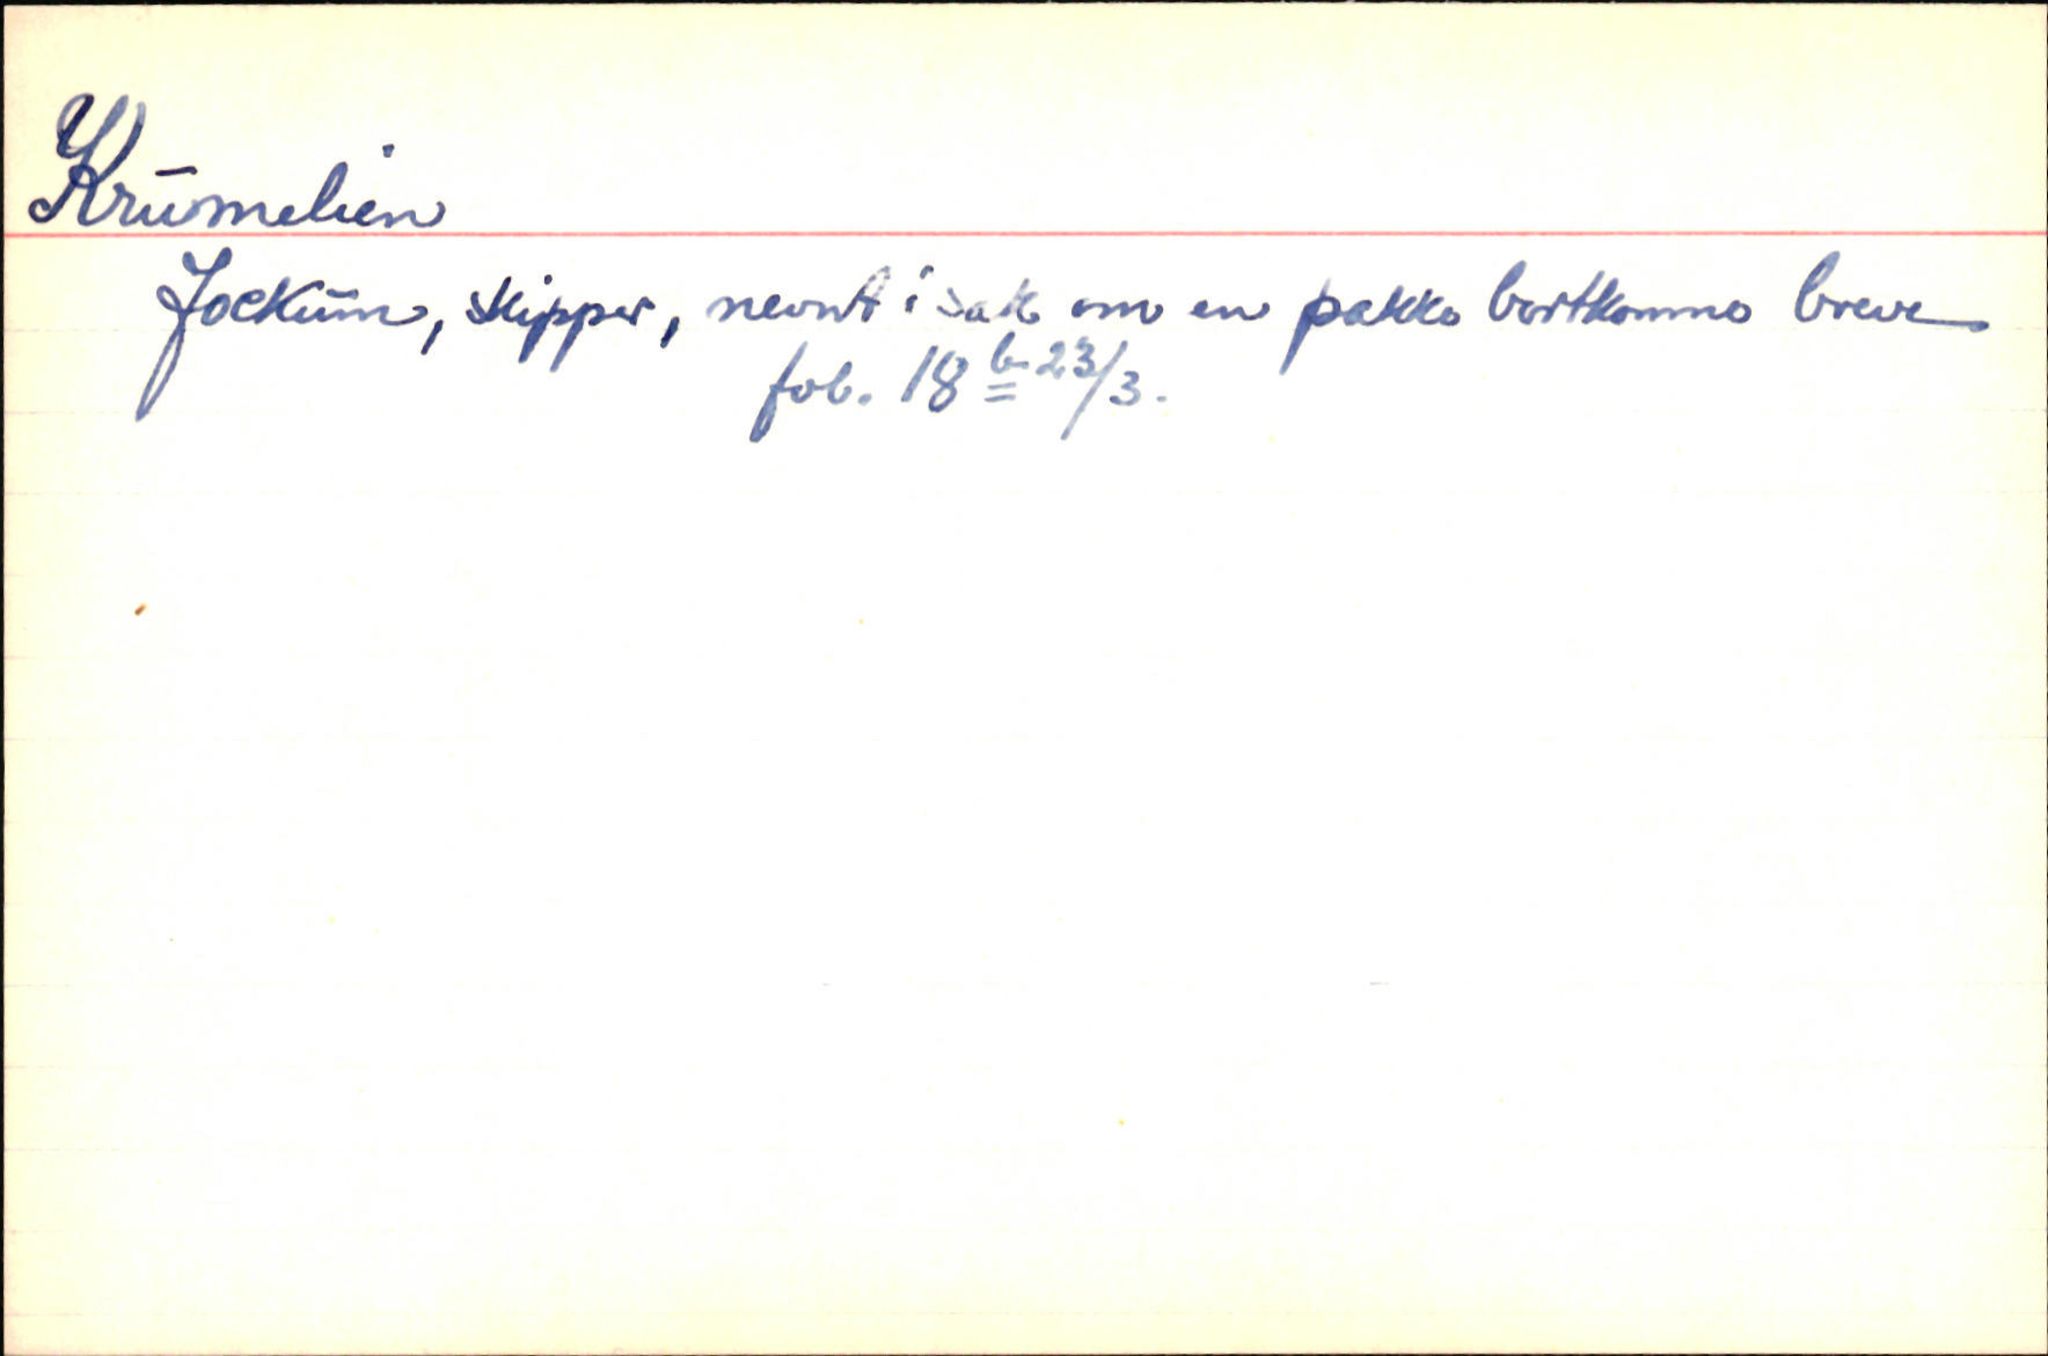 Krūmelien
Jockūm, skipper, nevnt i sak om en pakke bortkomne breve
fol. 18 b 23/3.